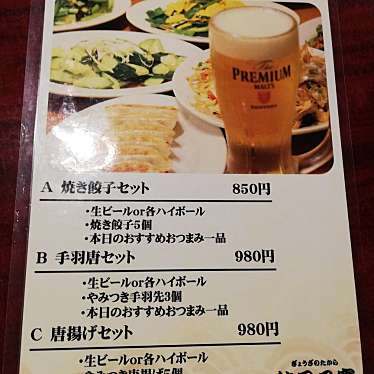 The
PREMIUM
MALT'S
SUNTORY
A 焼き餃子セット 850円
・生ビールor各ハイボール
・焼き餃子5個
・本日のおすすめおつまみ一品
B 手羽唐セット 980円
・生ビールor各ハイボール
・やみつき手羽先3個
・本日のおすすめおつまみ一品
C 唐揚げセット 980円
ぎょうざのたから
・生ビールor各ハイボール